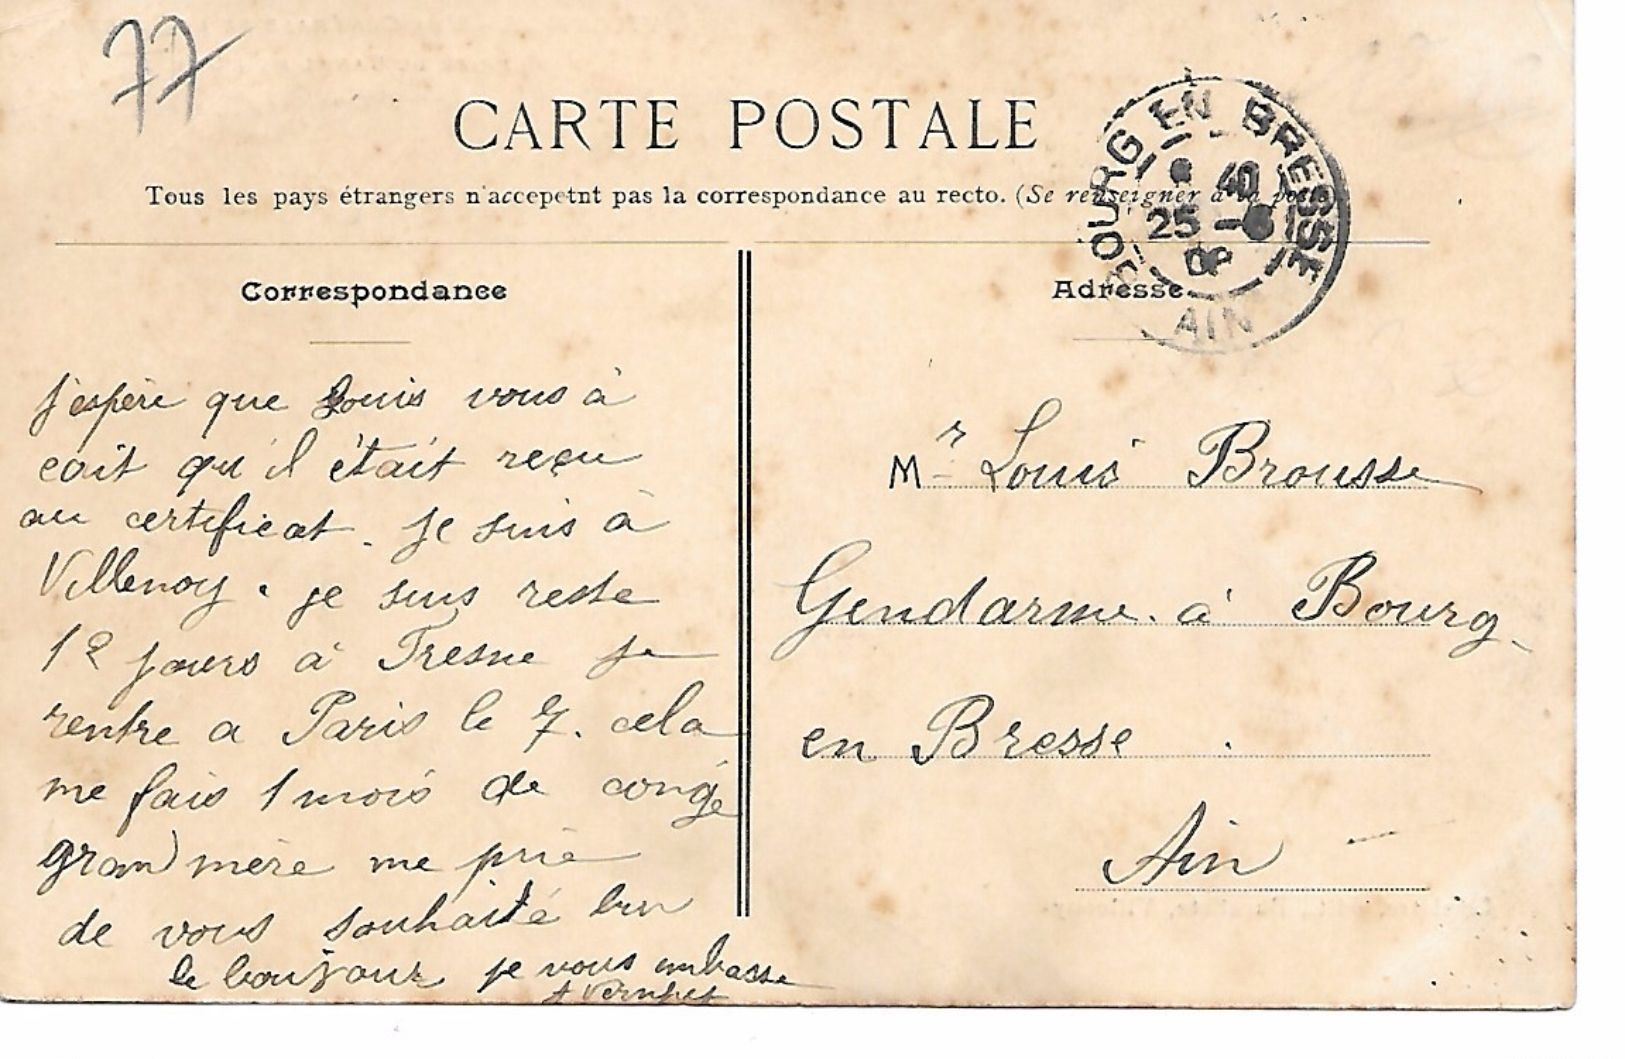 77
CARTE POSTALE
Tous les pays étrangers n'accepetnt pas la correspondance au recto. (Se renseigner à la poste)
BOURG EN BRESSE
40
25
AIN
Correspondance
Adresse
j'espère que Louis vous à
écrit qu'il était reçu
au certificat. je suis à
Villenoy. je suis reste
12 jours à Fresne je
rentre a Paris le 7. cela
me fais 1 mois de congé
grand mère me prie
de vous souhaité bien
le boujour je vous embasse
Mr Louis Brousse
Gendarme. à Bourg
en Bresse.
Ain